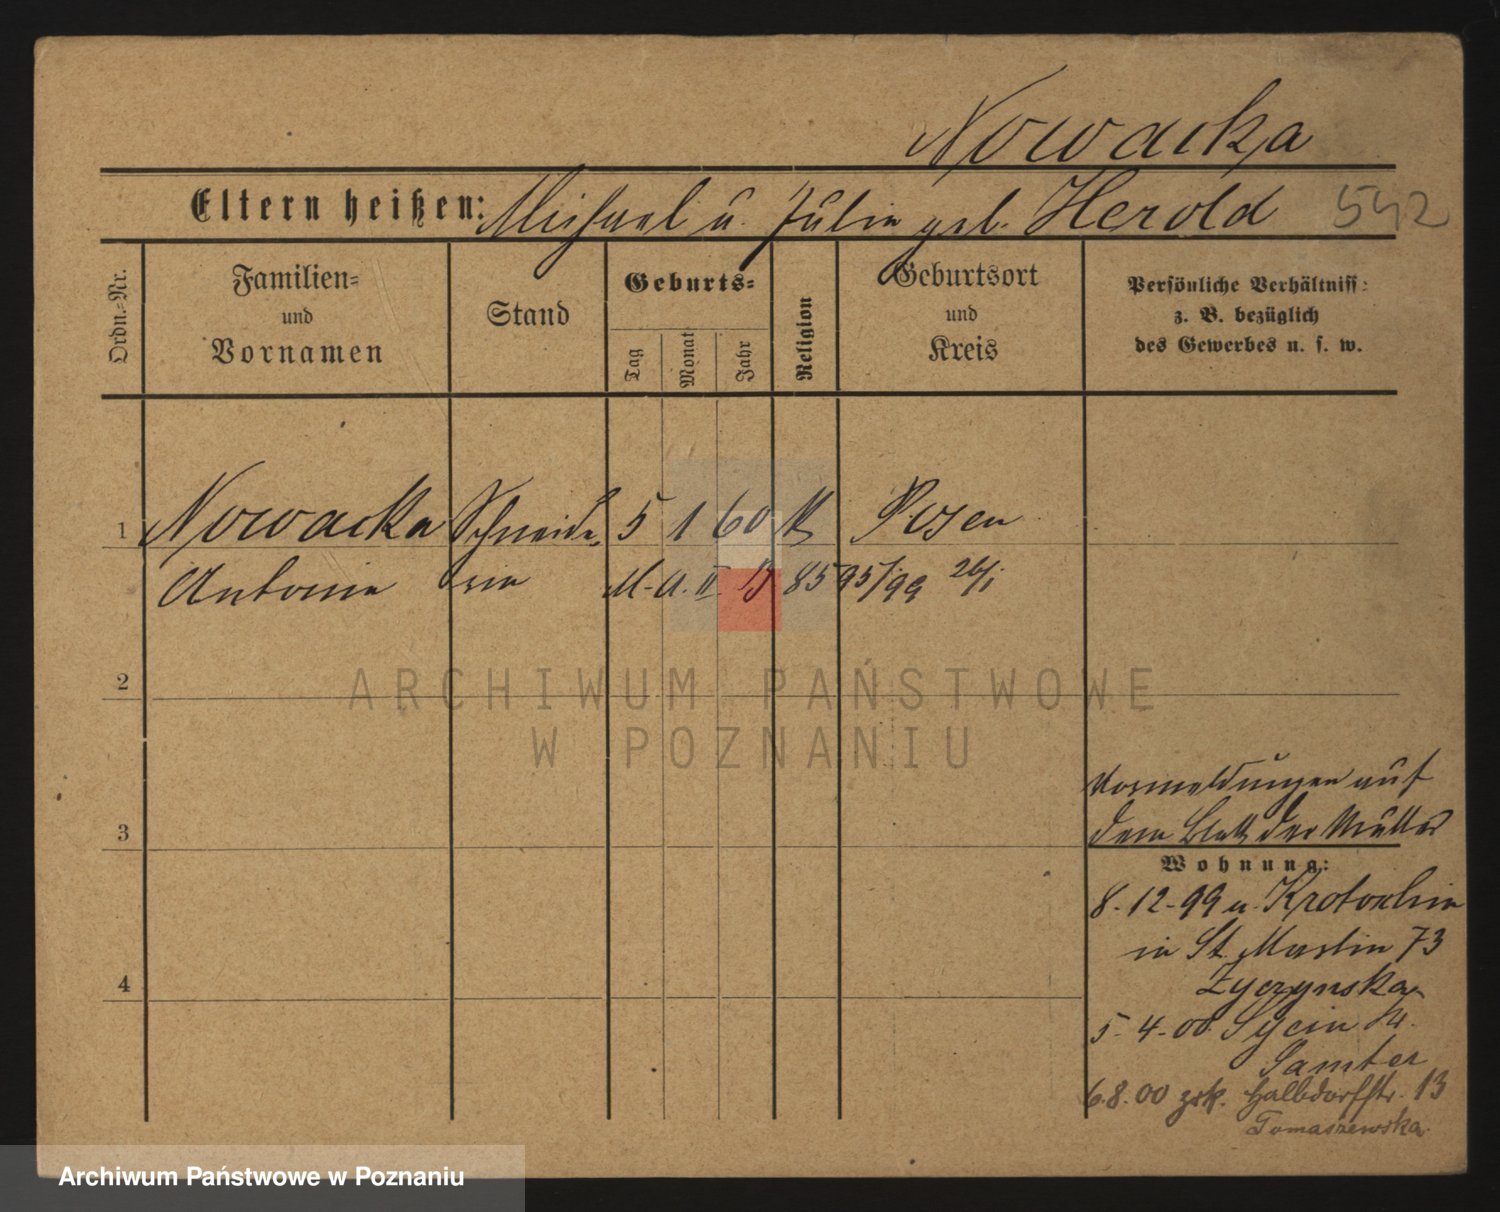 Nowacka
Eltern heißen: Michael u. Julie geb. Herold 542
Ordn.-Nr.
Familien-
und
Vornamen
Stand
Geburts-
Tag
Monat
Jahr
Religion
Geburtsort
und
Kreis
Persönliche Verhältniss:
z. B. bezüglich
des Gewerbes u. s. w.
1 Nowacka Schneide- 5 1 60 k Posen
Antonie rin M. A. II. B 85 95/99 26/1
2
ARCHIWUM PAŃSTWOWE
W POZNANIU
Vormeldungen auf
3 dem Blatt der Mutter
Wohnung:
8.-12-99 u. Krotoschin
in St. Martin 73
4 Życzynska
5.-4-00. Kr.
Samter
6.8.00 zrk. Halbdorfstr. 13
Tomaszewska.
Archiwum Państwowe w Poznaniu